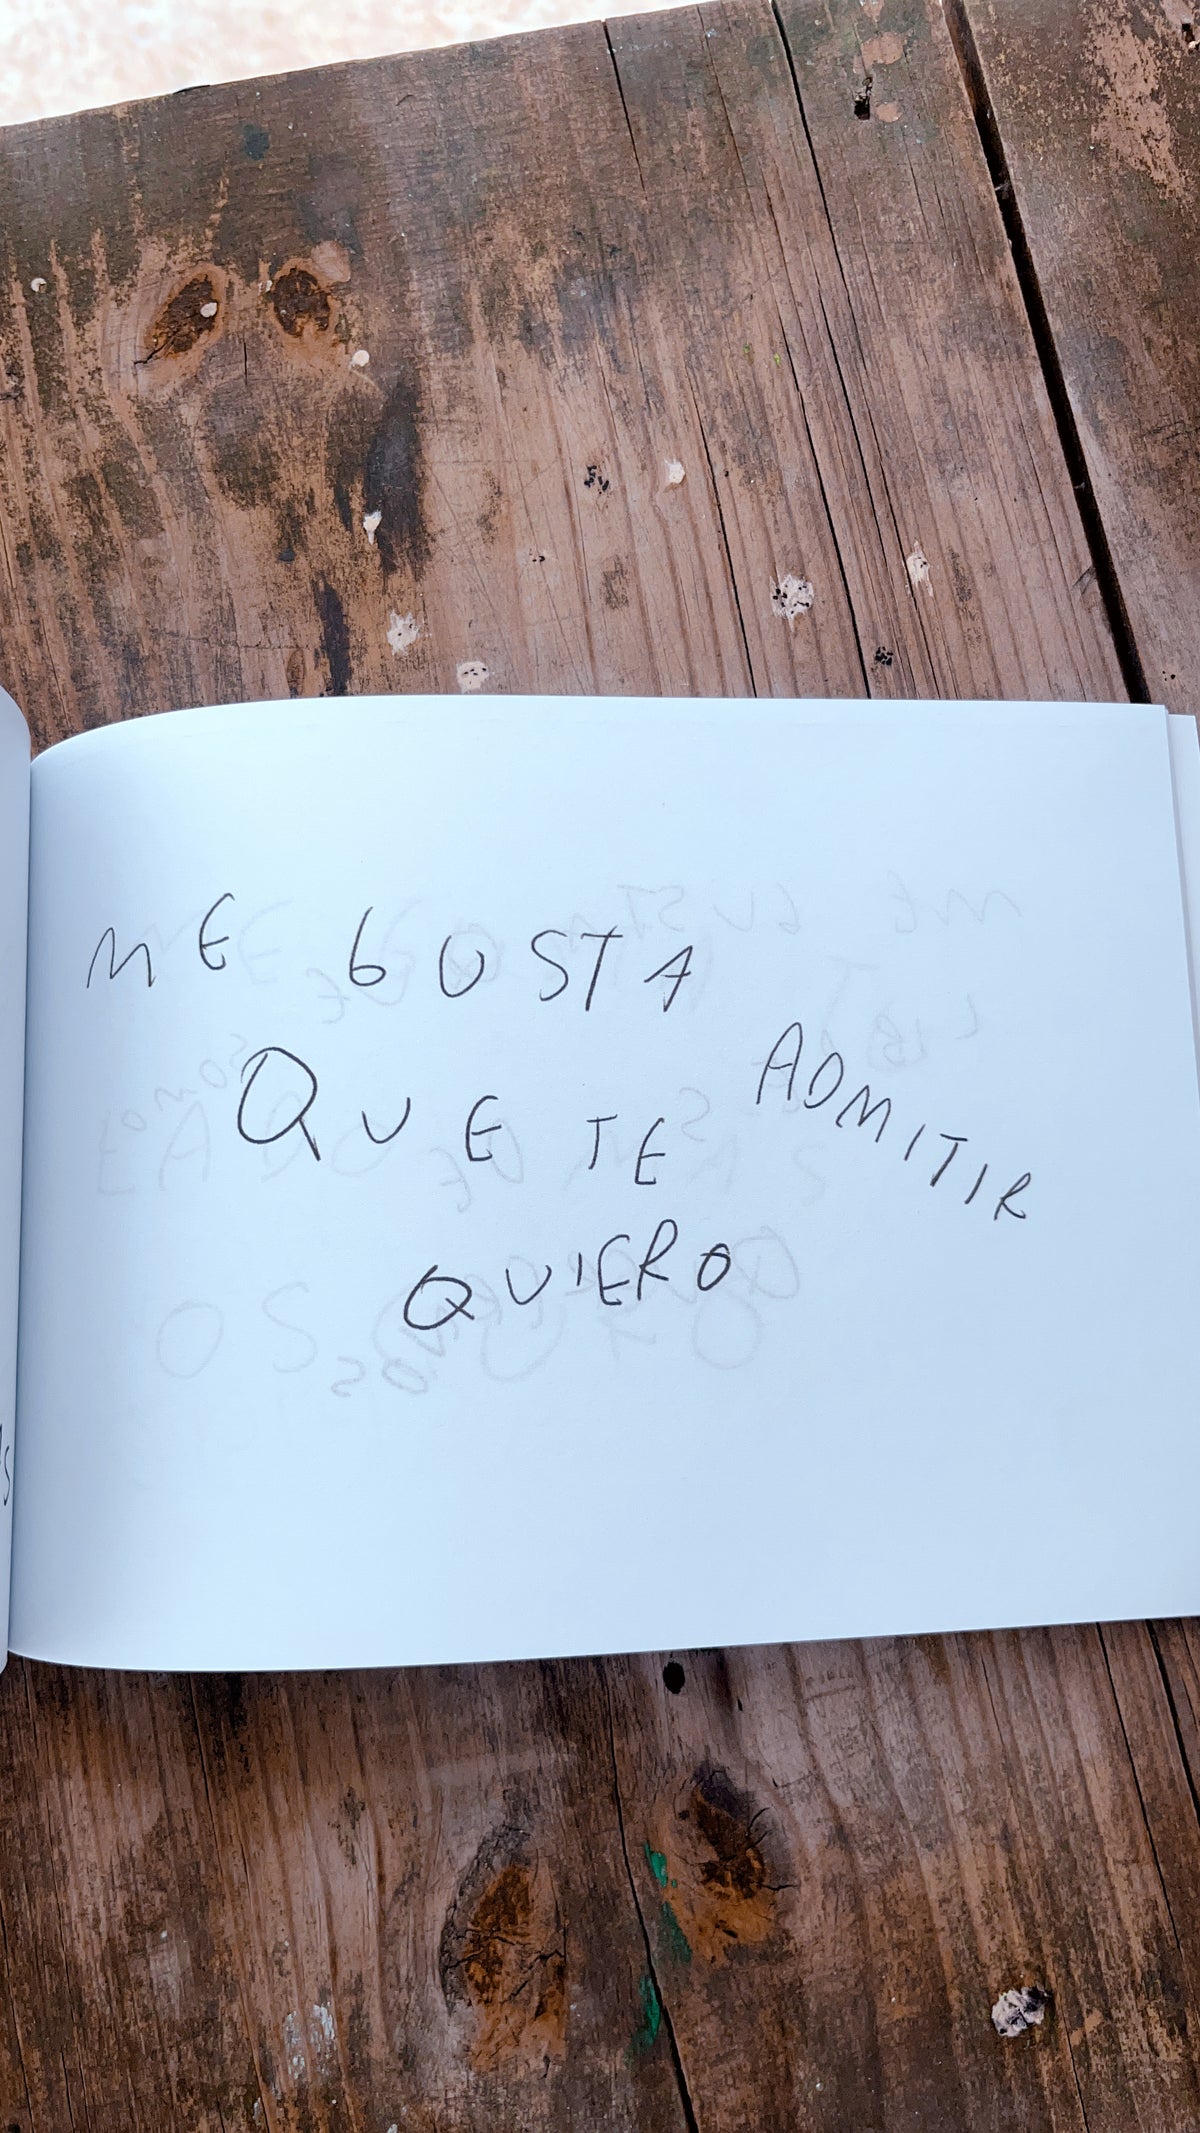 ME GUSTA
QUE TE ADMITIR
QUIERO